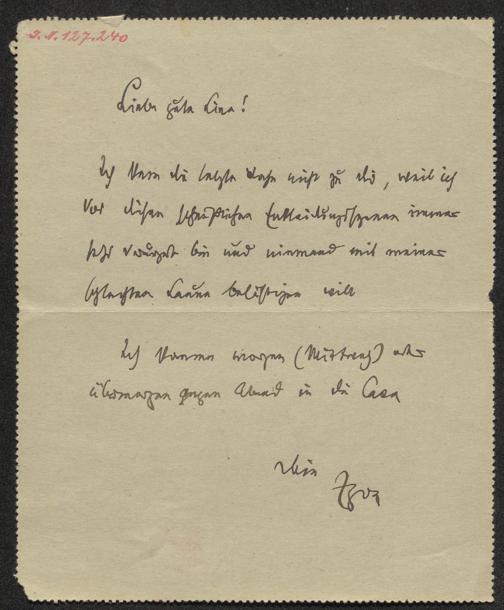 J.N. 127.240
Liebe gute Lina!
Ich kam die letzte Woche nicht zu dir, weil ich
vor diesen scheußlichen Entkleidungsszenen immer
sehr bin und niemand mit meiner
schlechten Laune belästigen will
Ich komme morgen (Mittwoch) oder
übermorgen gegen Abend in die Casa
Dein
Egon